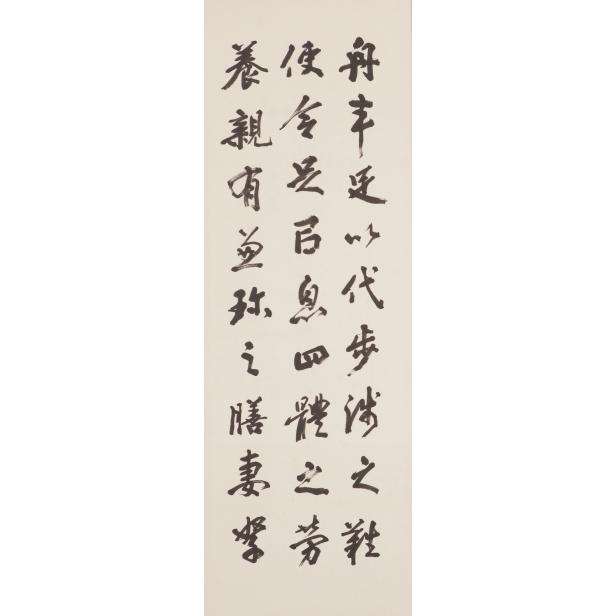 舟車足以代步涉之難
使令足以息四體之勞
養親有兼珍之膳妻孥